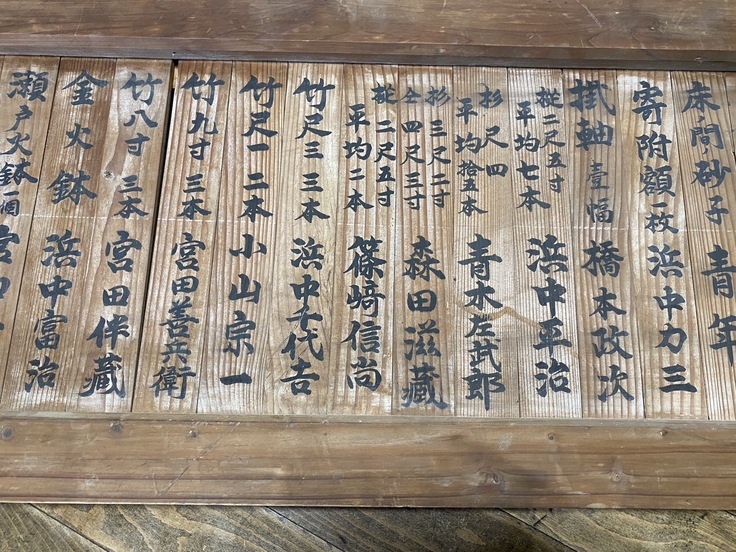 床ノ間砂子 青年
寄附額一枚 浜中力三
掛軸壹幅 橋本政次
樅二尺五寸平均七本 浜中平治
杉尺四平均拾五本 青木左武郎
杉三尺二寸仝四尺三寸 森田滋藏
樅二尺五寸平均二本 篠﨑信尚
竹尺三 三本 浜中千代吉
竹尺一 二本 小山宗一
竹九寸 三本 宮田善兵衛
竹八寸 三本 宮田伴藏
金火鉢 浜中富治
瀬戸火鉢 宮田